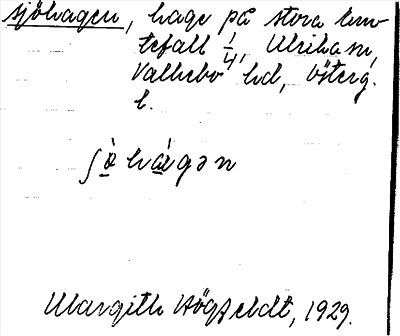 sjöhagen, hage på stora Tun-
tefall 1/4, Ulrika sn,
Valkebo hd, Österg.
l.
ʃö̀ hágən
Margith Högfeldt, 1929.